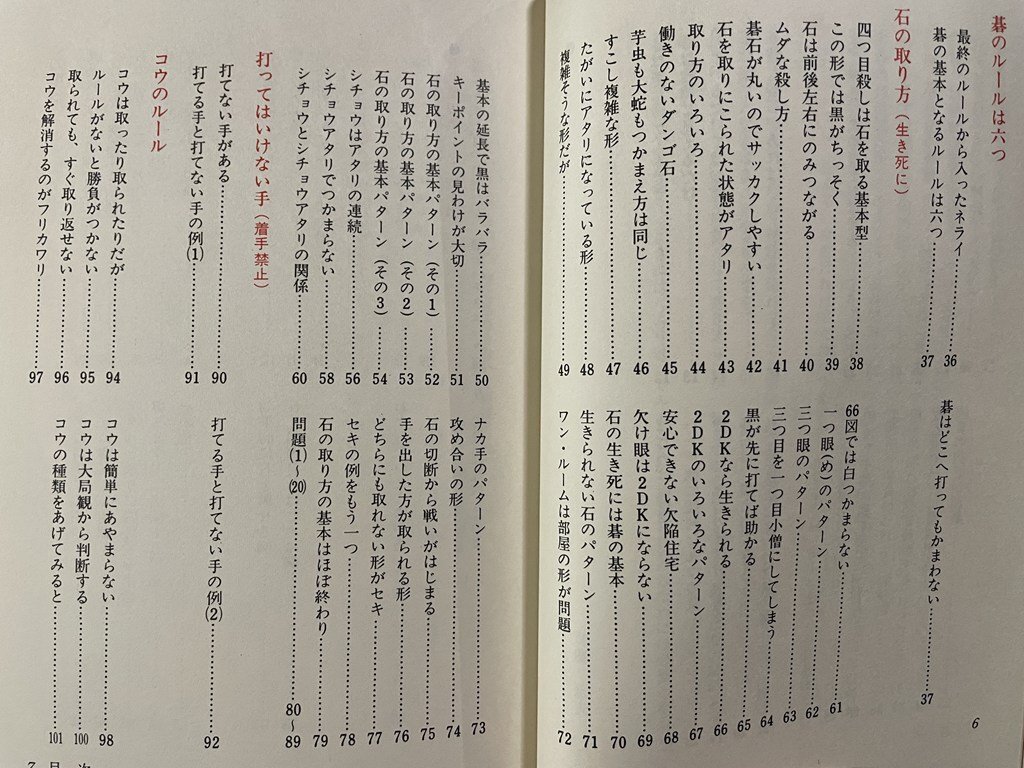 碁のルールは六つ
最終のルールから入ったネライ……36
碁の基本となるルールは六つ……37
碁はどこへ打ってもかまわない……37
石の取り方（生き死に）
四つ目殺しは石を取る基本型……38
この形では黒がちっそく……39
石は前後左右にのみつながる……40
ムダな殺し方……41
碁石が丸いのでサッカクしやすい……42
石を取りにこられた状態がアタリ……43
取り方のいろいろ……44
働きのないダンゴ石……45
芋虫も大蛇もつかまえ方は同じ……46
すこし複雑な形……47
たがいにアタリになっている形……48
複雑そうな形だが……49
66図では白つかまらない……61
一つ眼(め)のパターン……62
三つ眼のパターン……63
三つ目を一つ目小僧にしてしまう……64
黒が先に打てば助かる……65
2DKなら生きられる……66
2DKのいろいろなパターン……67
安心できない欠陥住宅……68
欠け眼は2DKにならない……69
石の生き死には碁の基本……70
生きられない石のパターン……71
ワン・ルームは部屋の形が問題……72
6
基本の延長で黒はバラバラ……50
キーポイントの見わけが大切……51
石の取り方の基本パターン（その1）……52
石の取り方の基本パターン（その2）……53
石の取り方の基本パターン（その3）……54
シチョウはアタリの連続……56
シチョウアタリでつかまらない……58
シチョウとシチョウアタリの関係……60
ナカ手のパターン……73
攻め合いの形……74
石の切断から戦いがはじまる……75
手を出した方が取られる形……76
どちらにも取れない形がセキ……77
セキの例をもう一つ……78
石の取り方の基本はほぼ終わり……79
問題(1)〜(20)……80〜89
打ってはいけない手（着手禁止）
打てない手がある……90
打てる手と打てない手の例(1)……91
打てる手と打てない手の例(2)……92
コウのルール
コウは取ったり取られたりだが……94
ルールがないと勝負がつかない……95
取られても、すぐ取り返せない……96
コウを解消するのがフリカワリ……97
コウは簡単にあやまらない……98
コウは大局観から判断する……100
コウの種類をあげてみると……101
7 目 次